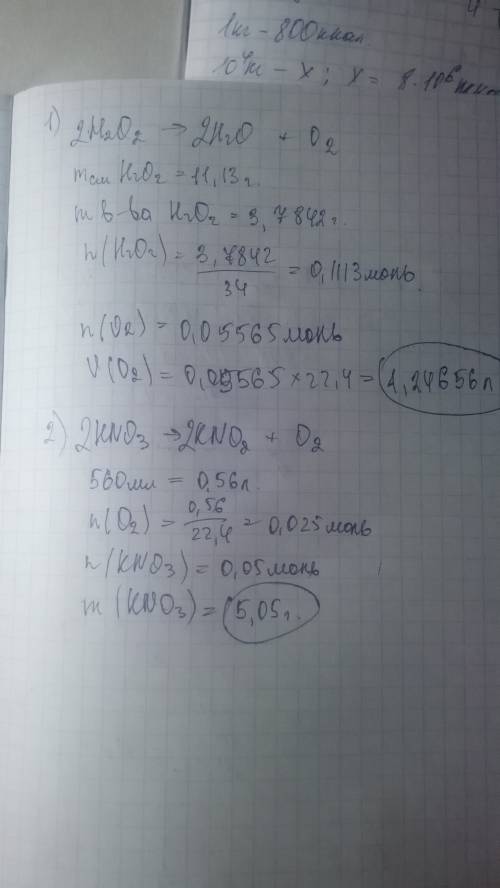 1кг - 800ккал.
10⁴кг - x; x = 8·10⁶ ккал
1) 2H₂O₂ → 2H₂O + O₂
mсм H₂O₂ = 11,13г.
m в-ва H₂O₂ = 3,7842г.
n(H₂O₂) = 3,7842/34 = 0,1113моль.
n(O₂) = 0,05565моль
V(O₂) = 0,05565×22,4 = 1,24656л
2) 2KNO₃ → 2KNO₂ + O₂
560мл = 0,56л.
n(O₂) = 0,56/22,4 = 0,025моль
n(KNO₃) = 0,05моль
m(KNO₃) = 5,05г.